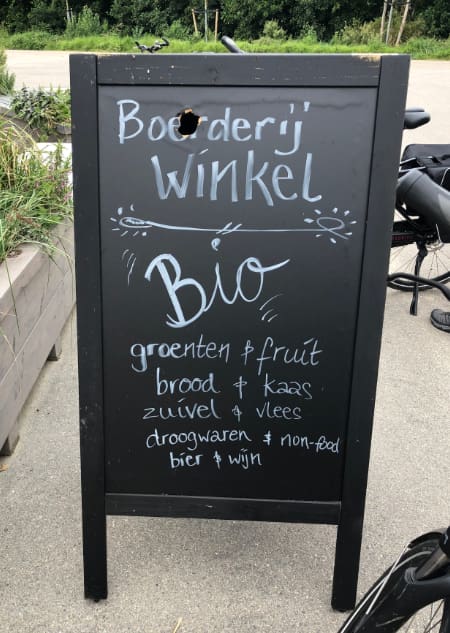 Boerderij
Winkel
Bio
groenten & fruit
brood & kaas
zuivel & vlees
droogwaren & non-food
bier & wijn